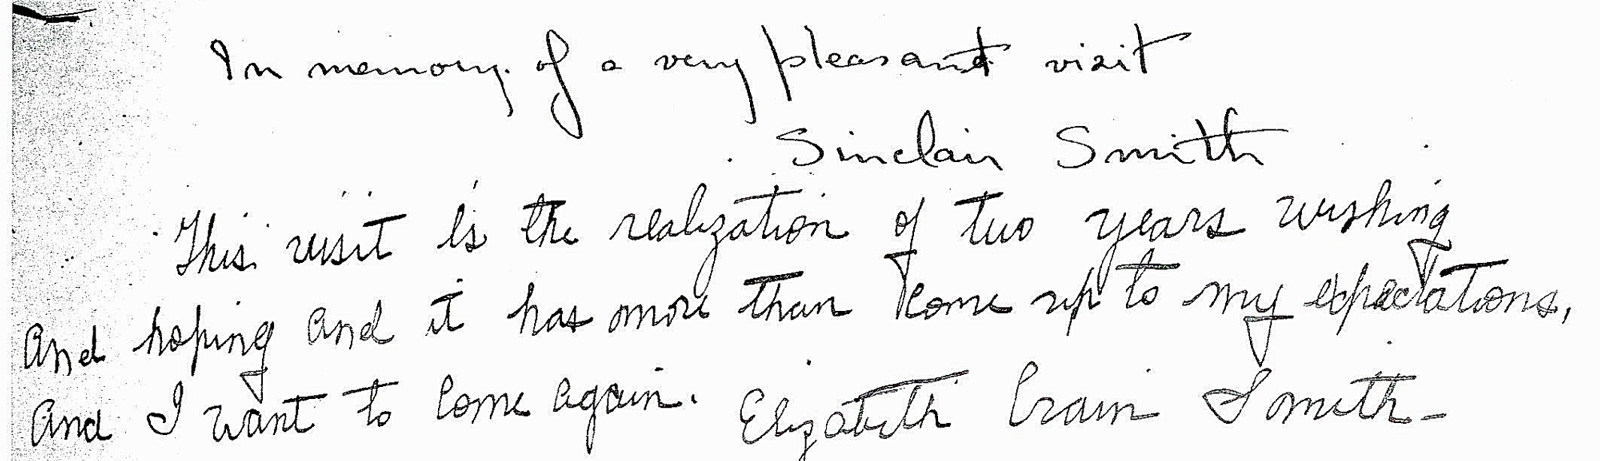 In memory of a very pleasant visit
Sinclair Smith
This visit is the realization of two years wishing
and hoping and it has more than come up to my expectations,
and I want to come again. Elizabeth Crain Smith-